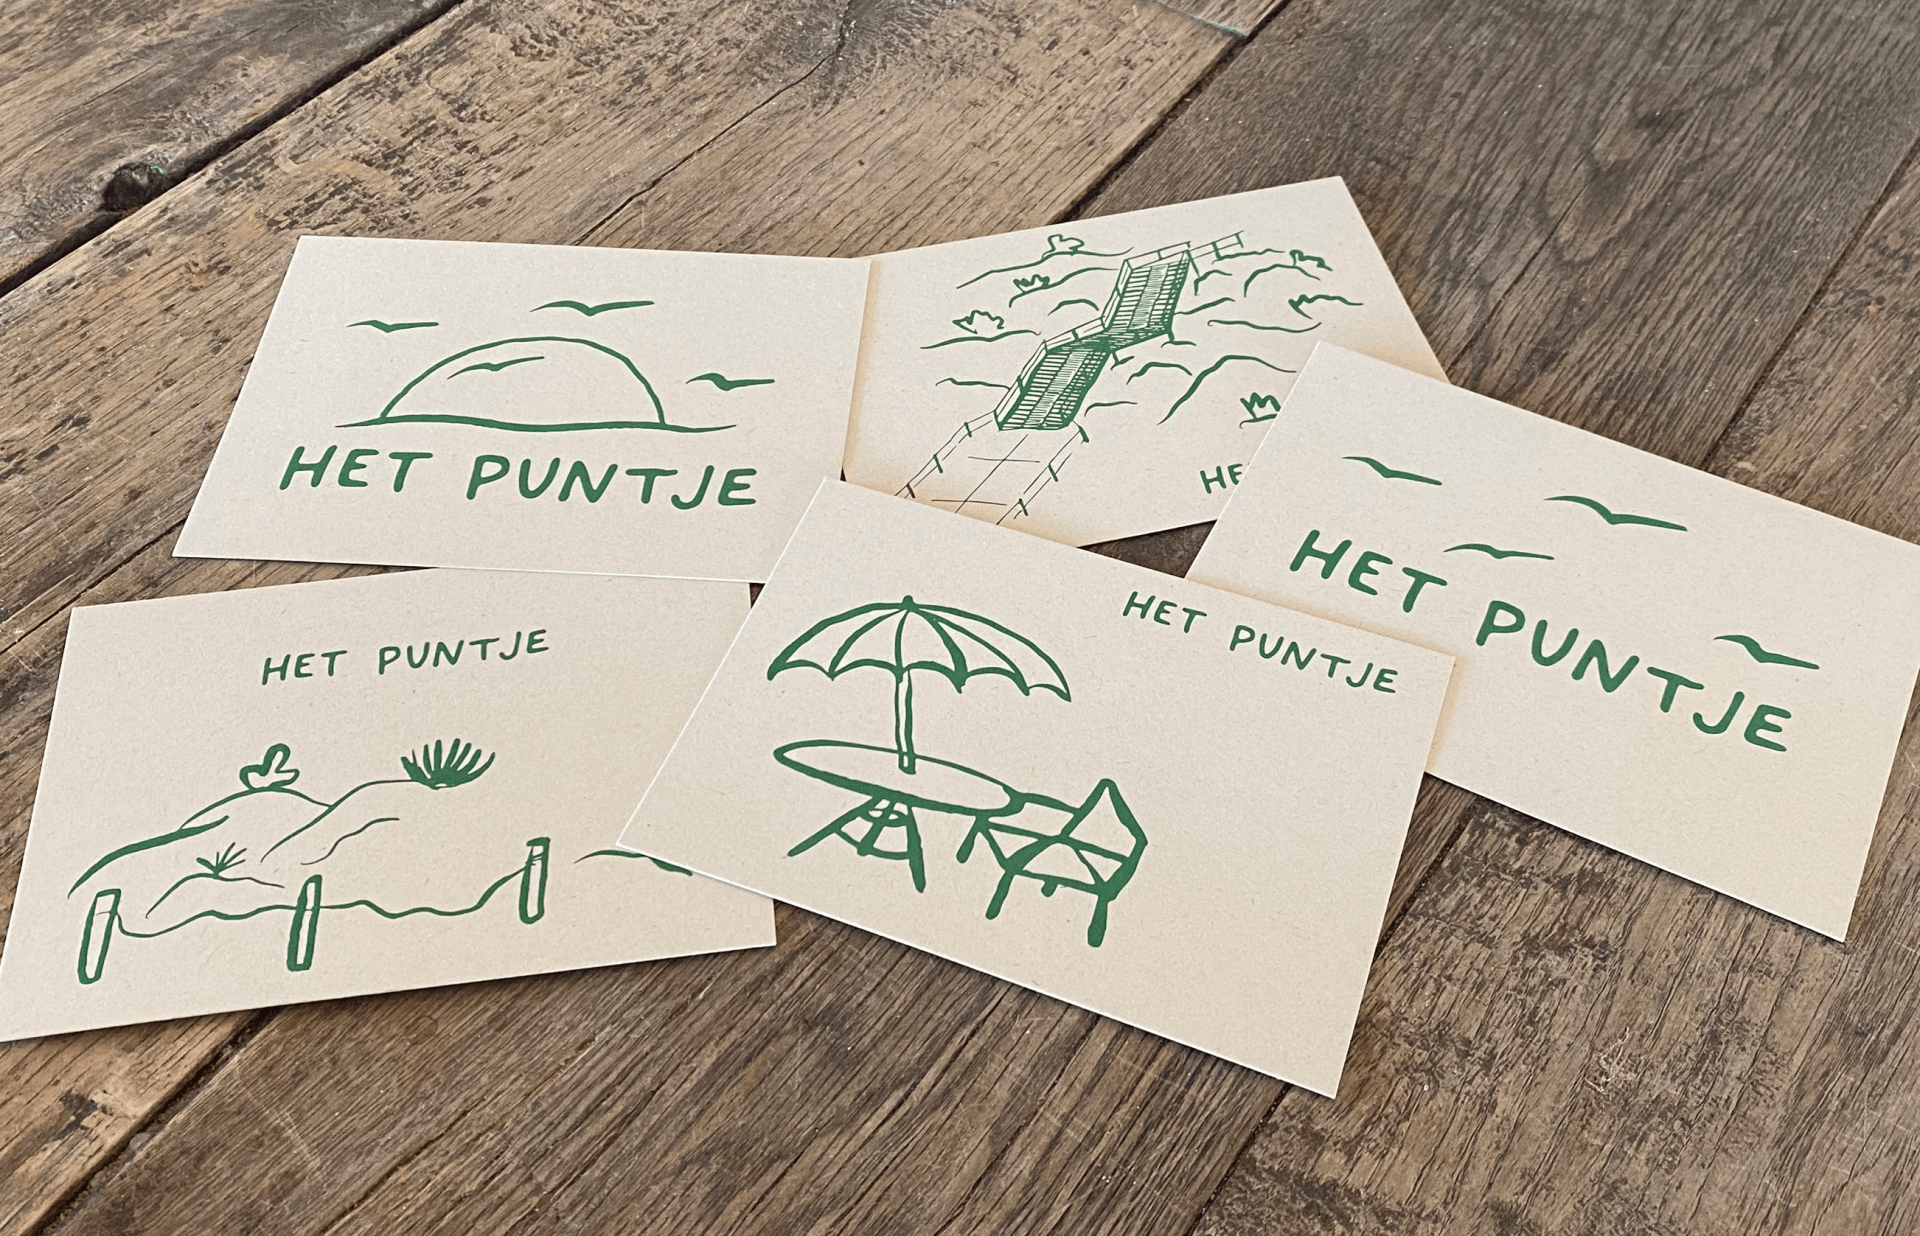 HET PUNTJE
HE
HET PUNTJE
HET PUNTJE
HET PUNTJE